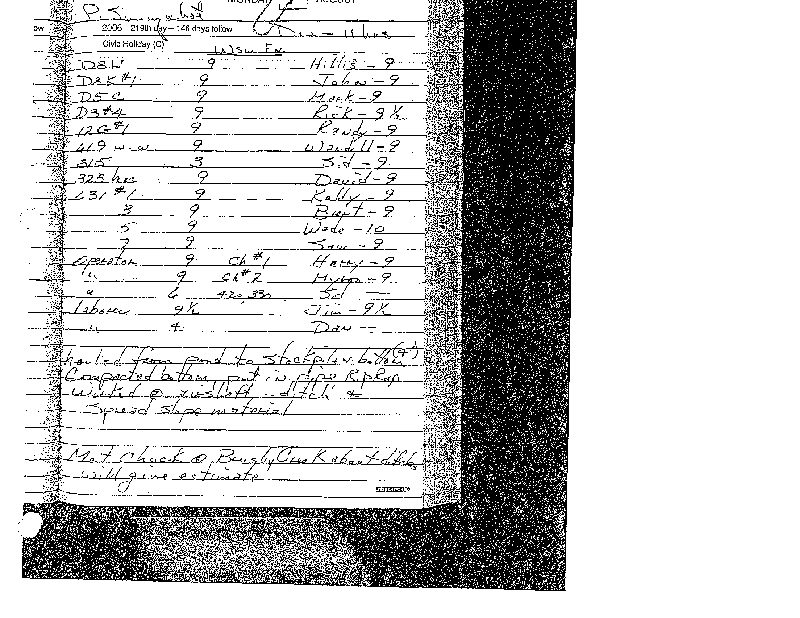 MONDAY AUGUST
2006 219th day - 146 days follow
Civic Holiday (C)
D8H 9 Hillis - 9
D8K #1 9 John - 9
D5C 9 Mark - 9
D3 #4 9 Rick - 9 ½
12G #1 9 Randy - 9
619 w.w 9 Wendell - 9
315 3 Sid - 9
325 9 David - 9
631 #1 9 Kelly - 9
3 9 Brent - 9
5 9 Wade - 10
7 9 Sam - 9
Operator 9 Ch #1 Harry - 9
" 9 Ch #2 - 9
" 6 420, 330
Labourer 9 ½ Jim - 9 ½
" 4 Dan
hauled from pond to stockpile bottom
Compacted bottom, put in pipe RipRap
Worked @ ditch &
Spread slope material
Met Chuck @ Creek about ditches
will give estimate